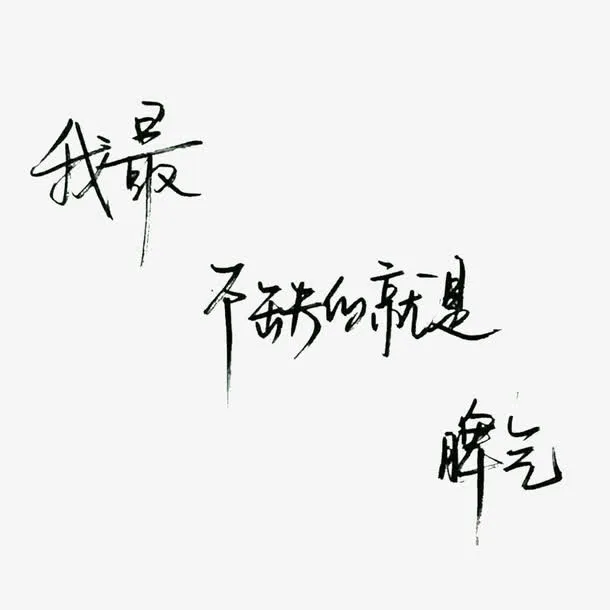 我最
不缺的就是
脾气